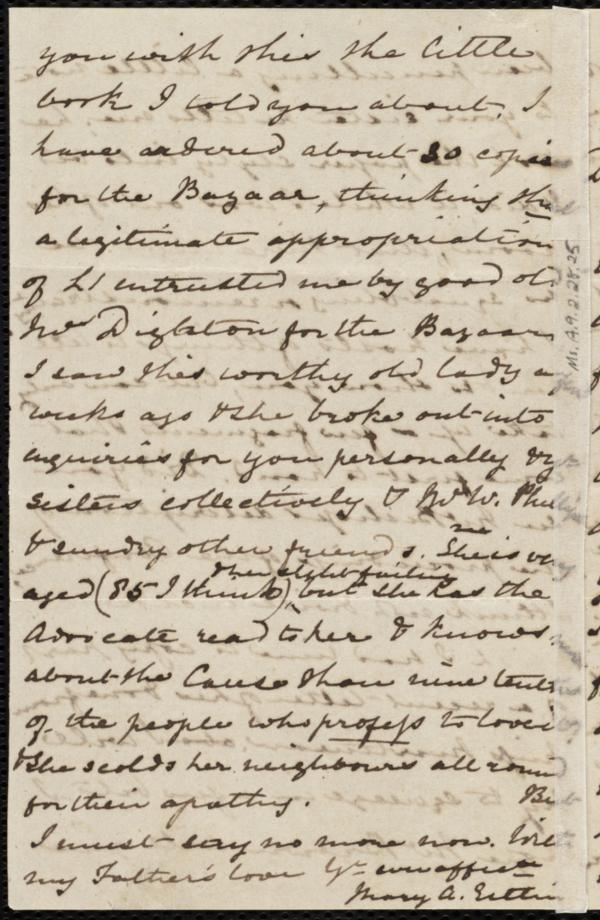 you with this the little
book I told you about. I
have ordered about 30 copie
for the Bazaar, thinking thi
a legitimate appropriation
of £1 intrusted me by good old
Mrs Dighton for the Bazaar
I saw this worthy old lady a
weeks ago & she broke out into
inquiries for you personally yr
sisters collectively & Mr W. Phil
& sundry other friends. She is ve
aged (85 I think) & her sight failing but she has the
Advocate read to her & knows
about the Cause than nine tent
of the people who profess to love i
& she scolds her neighbours all roun
for their apathy. Bu
I must say no more now. Wi
my Father's love Yr ever affecte
Mary A. Estlin
Ms. A.9.2.28.25